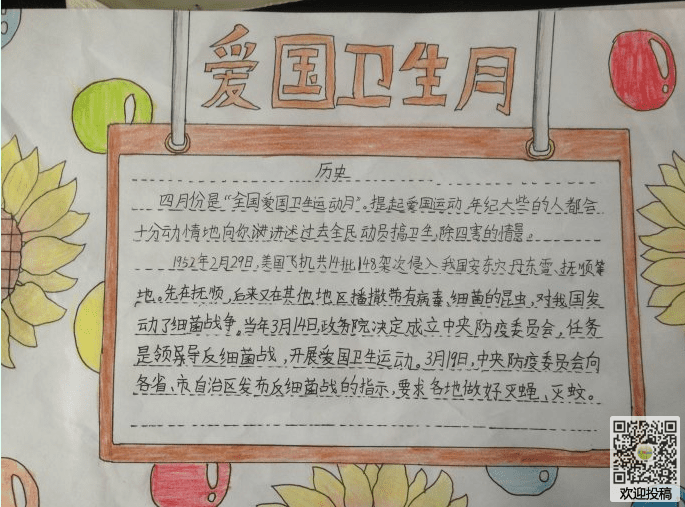 爱国卫生月
历史
四月份是“全国爱国卫生运动月”。提起爱国运动,年纪大些的人都会
十分动情地向你讲述过去全民动员搞卫生,除四害的情景。
1952年2月29日,美国飞机共14批148架次侵入我国安东
抚顺等
地。先在抚顺,后来又在其他地区播撒带有病毒、细菌的昆虫,对我国发
动了细菌战争。当年3月14日,政务院决定成立中央防疫委员会,任务
是领导反细菌战,开展爱国卫生运动。3月19日,中央防疫委员会向
各省、市自治区发布反细菌战的指示,要求各地做好灭蝇、灭蚊。
欢迎投稿